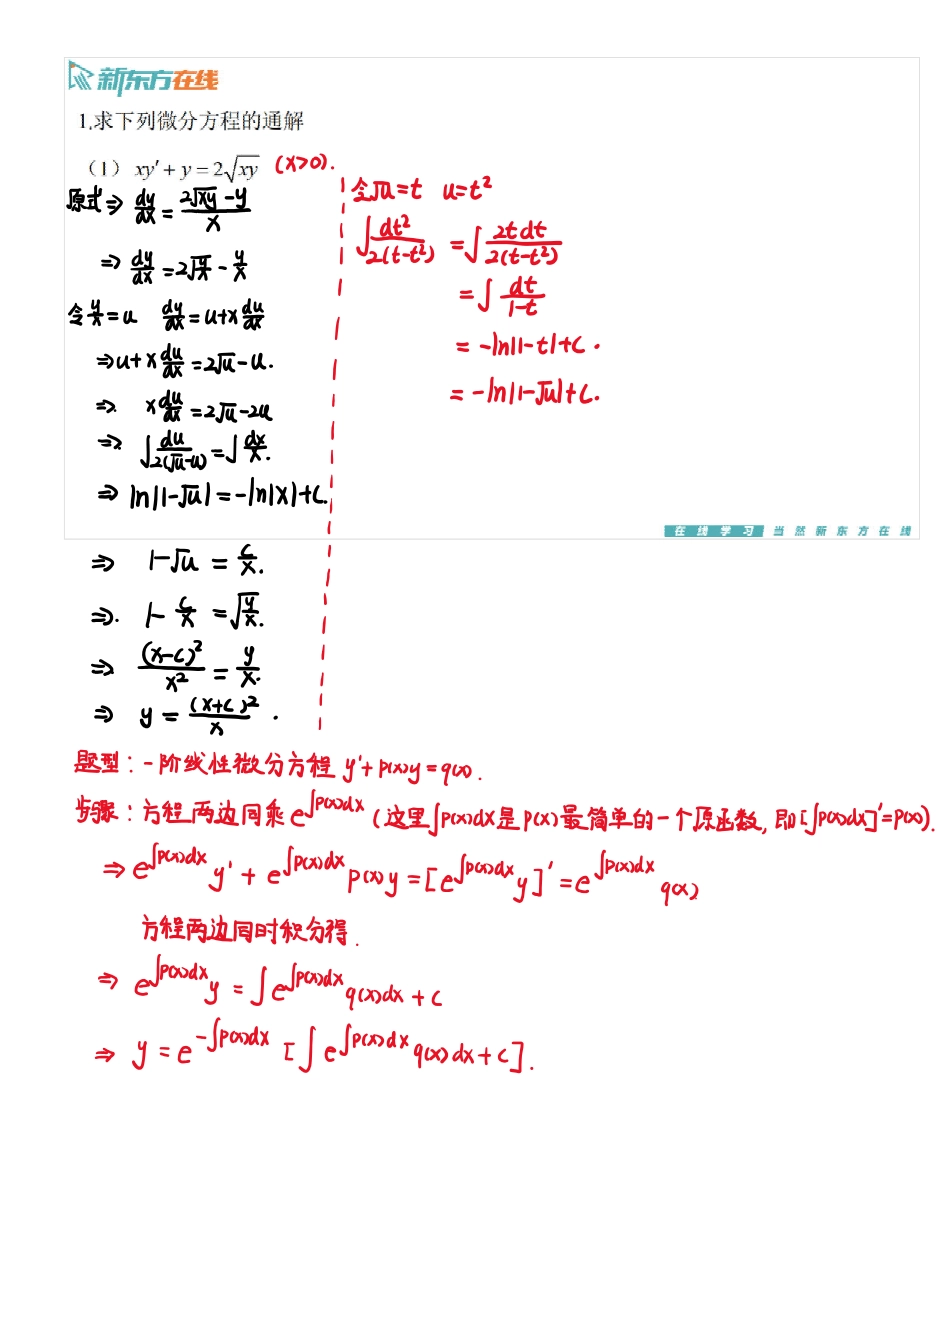 新东方在线
1.求下列微分方程的通解
(1) xy′ + y = 2√(xy) (x>0).
原式⇒ dy/dx = (2√(xy) - y)/x
⇒ dy/dx = 2√(y/x) - y/x
令 y/x = u dy/dx = u+x du/dx
⇒ u+x du/dx = 2√u - u.
⇒. x du/dx = 2√u - 2u
⇒. ∫ du/(2(√u-u)) = ∫ dx/x.
⇒ ln|1-√u| = -ln|x|+C.
⇒ 1-√u = C/x.
⇒. 1- C/x = √(y/x).
⇒ (x-C)²/x² = y/x.
⇒ y = (x+C)²/x .
令√u=t u=t²
∫ dt²/(2(t-t²)) = ∫ 2tdt/(2(t-t²))
= ∫ dt/(1-t)
= -ln|1-t|+C .
= -ln|1-√u|+C.
在线学习 当然新东方在线
题型: 一阶线性微分方程 y′+p(x)y=q(x).
步骤: 方程两边同乘 e^∫p(x)dx (这里∫p(x)dx是p(x)最简单的一个原函数, 即[∫p(x)dx]′=p(x)).
⇒ e^∫p(x)dx y′ + e^∫p(x)dx p(x)y = [e^∫p(x)dx y]′ = e^∫p(x)dx q(x)
方程两边同时积分得.
⇒ e^∫p(x)dx y = ∫e^∫p(x)dx q(x)dx + C
⇒ y = e^-∫p(x)dx [∫e^∫p(x)dx q(x)dx+C].